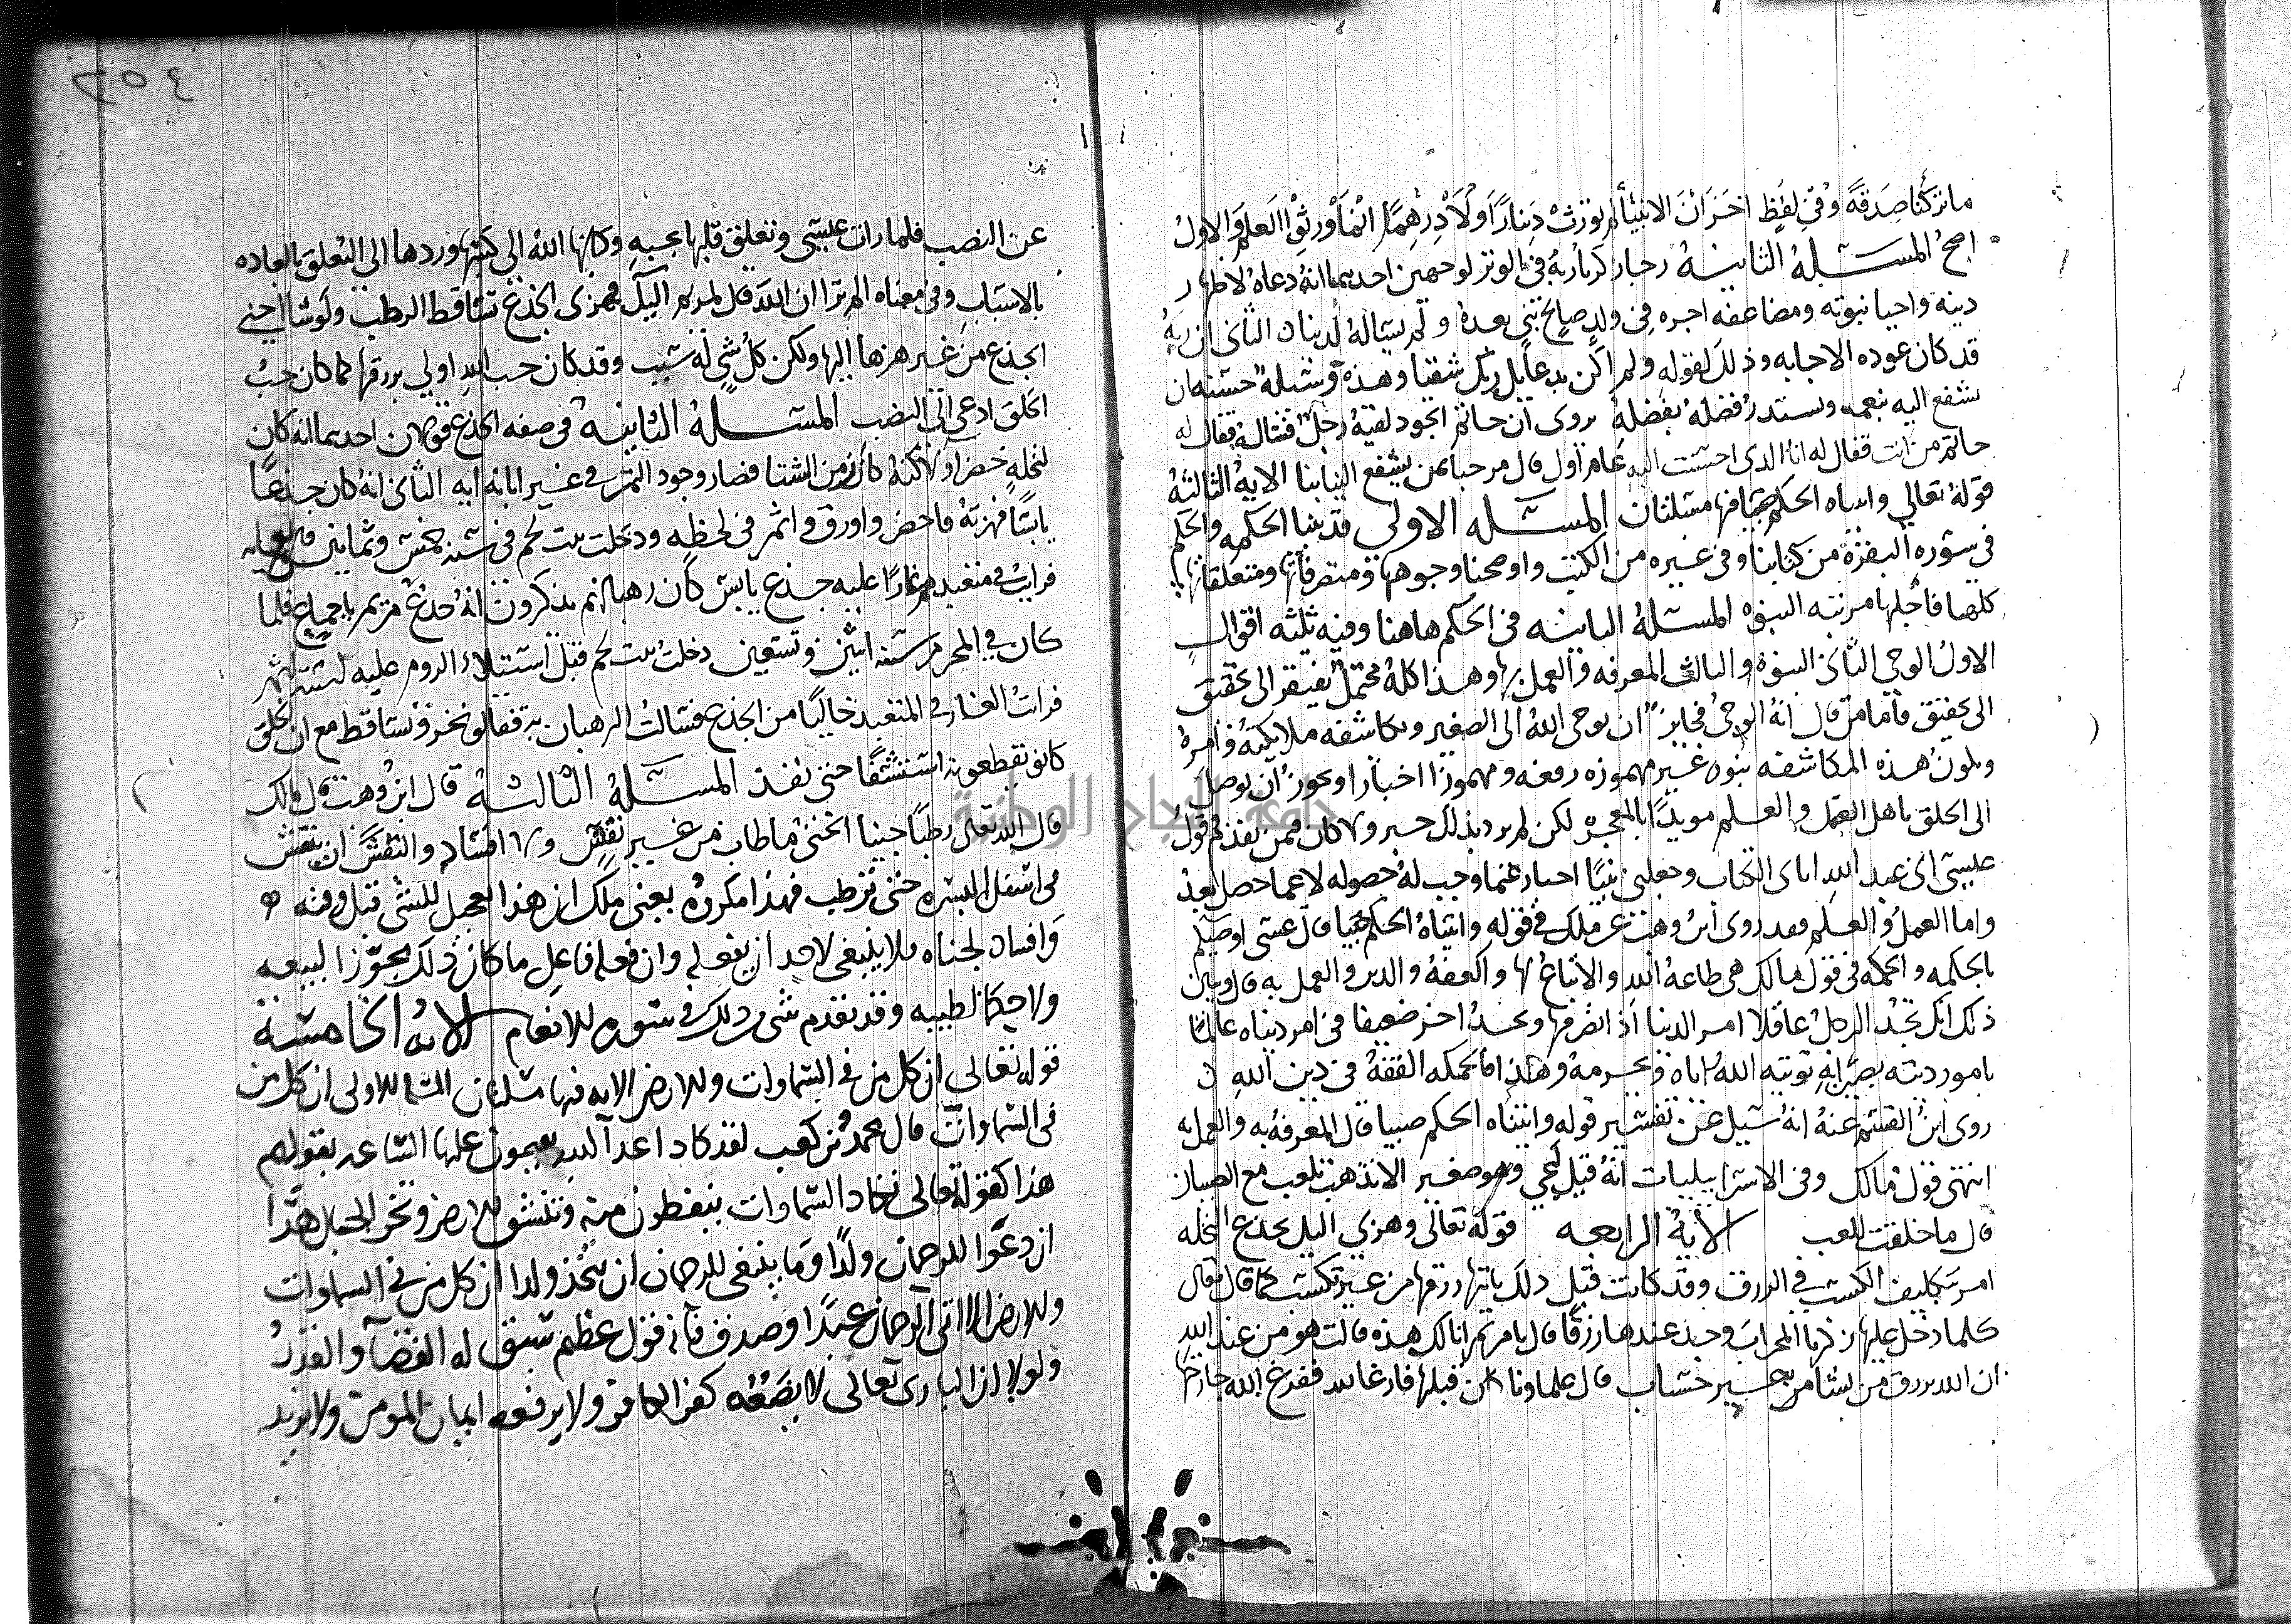 ما تركنا صدقة وفي لفظ اخر ان الانبيا لم يورثوا دينارا ولا درهما انما ورثوا العلم والاول
اصح المسئلة الثانية رجا زكريا ربه في الولد لوجهين احدهما انه دعاه لاظهار
دينه واحيا نبوته ومضاعفه اجره في ولد صالح نبي بعده ولم يساله لدنيا الثاني ان ربه
قد كان عوده الاجابه وذلك لقوله ولم اكن بدعايك رب شقيا وهذه وسيلة حسنة ان
يشفع اليه بنعمه ويستدر فضله بفضله يروى ان حاتم الجود لقيه رجل فساله فقال له
حاتم من انت فقال له انا الذى احسنت اليه عام اول قال مرحبا بمن يشفع الينا بنا الاية الثالثة
قوله تعالى واتيناه الحكم صبيا فيها مسئلتان المسئله الاولى قد بينا الحكمه والحكم
في سوره البقرة من كتابنا وفي غيره من الكتب واوضحنا وجوهها ومتصرفاتها ومتعلقاتها
كلها فاجلها مرتبه النبوه المسئلة الثانيه في الحكم هاهنا وفيه ثلثه اقوال
الاول الوحي الثاني النبوة والثالث المعرفه والعمل بها وهذا كله محتمل يفتقر الى تحقيق
الى تحقيق فاما من قال انه الوحي فجايز ان يوحي الله الى الصغير ويكاشفه ملايكته وامره
وتكون هذه المكاشفه نبوه غير مهموزه رفعه ومهموزا اخبارا ويجوز ان يوصل
الى الخلق باهل العقل والعلم مويدا بالمعجزه لكن لم يرد بذلك خبر ولا كان فيمن تقدم قول
عيسى اني عبد الله اتاني الكتاب وجعلني نبيا اخبار عما وجب له حصوله لا عما حصل بعد
واما العمل والعلم فقد روى ابن وهب عن ملك في قوله واتيناه الحكم صبيا قال عيسى اوصيكم
بالحكمه والحكمه في قول مالك هي طاعة الله والاتباع لها والفقه والدين والعمل به قال ويبين
ذلك انك تجد الرجل عاقلا امر الدنيا اذ انظر فيها وتجد اخر ضعيفا في امر دنياه عالما
بامور دينه بصيرا به يوتيه الله اياه ويحرمه هذا فالحكمه الفقه في دين الله
روى ابن القسم عنه انه سيل عن تفسير قوله واتيناه الحكم صبيا قال المعرفه به والعمل به
انتهى قول مالك وفي الاسراييليات انه قيل ليحي وهو صغير الا تذهب نلعب مع الصبيان
قال ما خلقت للعب الاية الرابعه قوله تعالى وهزي اليك بجذع النخله
امر بتكليف الكسب في الرزق وقد كانت قبل ذلك ياتيها رزقها من غير تكسب كما قال تعالى
كلما دخل عليها زكريا المحراب وجد عندها رزقا قال يا مريم انى لك هذه قالت هو من عند الله
ان الله يرزق من يشا من بغير حساب قال علماونا كان قبلها فارغا لله ففرغ الله جارحتها
٢٥٤
عن النصب فلما رات عيسى وتعلق قلبها بحبه وكلها الله الى كسبها وردها الى التعلق بالعاده
بالاسباب وفي معناه الم تر ان الله قال لمريم اليك فهزى الجذع تساقط الرطب ولو شا احنى
الجذع من غير هزها اليها ولكن كل شي له سبب وقد كان حب الله اولى برزقها كما كان حب
الخلق ادعى الى النصب المسئلة الثانية في صفه الجذع قولان احدهما انه كان
لنخله خضرا ولاكنه كان زمن الشتا فصار وجود التمر في غير ابانه ايه الثاني انه كان جذعا
يابسا فهزته فاخضر واورق واثمر في لحظه ودخلت بيت لحم في سنه خمس وثمانين
فرايت في متعبدهم غارا عليه جذع يابس كان رهبانهم يذكرون انه جذع مريم باجماع فلما
كان في المحرم سنه اثنين وتسعين دخلت بيت لحم قبل استيلاء الروم عليه لستة اشهر
فرايت الغار في المتعبد خاليا من الجذع فسالت الرهبان به فقالو نخر وتساقط مع ان الخلق
كانو يقطعونه استشفا حتى نفذ المسئلة الثالثة قال ابن وهب قال مالك
قال الله تعالى رطبا جنيا الجني ما طاب من غير نقش ولا افساد والنقش ان ينقش
في اسفل البسره حتى ترطب فهذا مكروه يعني ملك ان هذا تعجيل للشي قبل وقته
وافساد لجناه فلا ينبغي لاحد ان يفعله وان فعله فاعل ما كان ذلك مجوزا لبيعه
ولا حكما لطيبه وقد تقدم شي من ذلك في سوره الانعام الاية الخامسة
قوله تعالى ان كل من في السماوات والارض الايه فيها مسئلتان المسئلة الاولى ان كل من
في السماوات قال محمد بن كعب لقد كاد اعدا الله يقيمون علينا الساعه بقولهم
هذا كقوله تعالى تكاد السماوات يتفطرن منه وتنشق الارض وتخر الجبال هدا
ان دعوا للرحمان ولدا وما ينبغي للرحمان ان يتخذ ولدا ان كل من في السماوات
والارض الا اتى الرحمان عبدا وصدق فانه قول عظيم سبق له القضا والقدر
ولولا ان الباري تعالى لا يضعه كفر الكافر ولا يرفعه ايمان المومن ولا يزيد
جامعة النجاح الوطنية